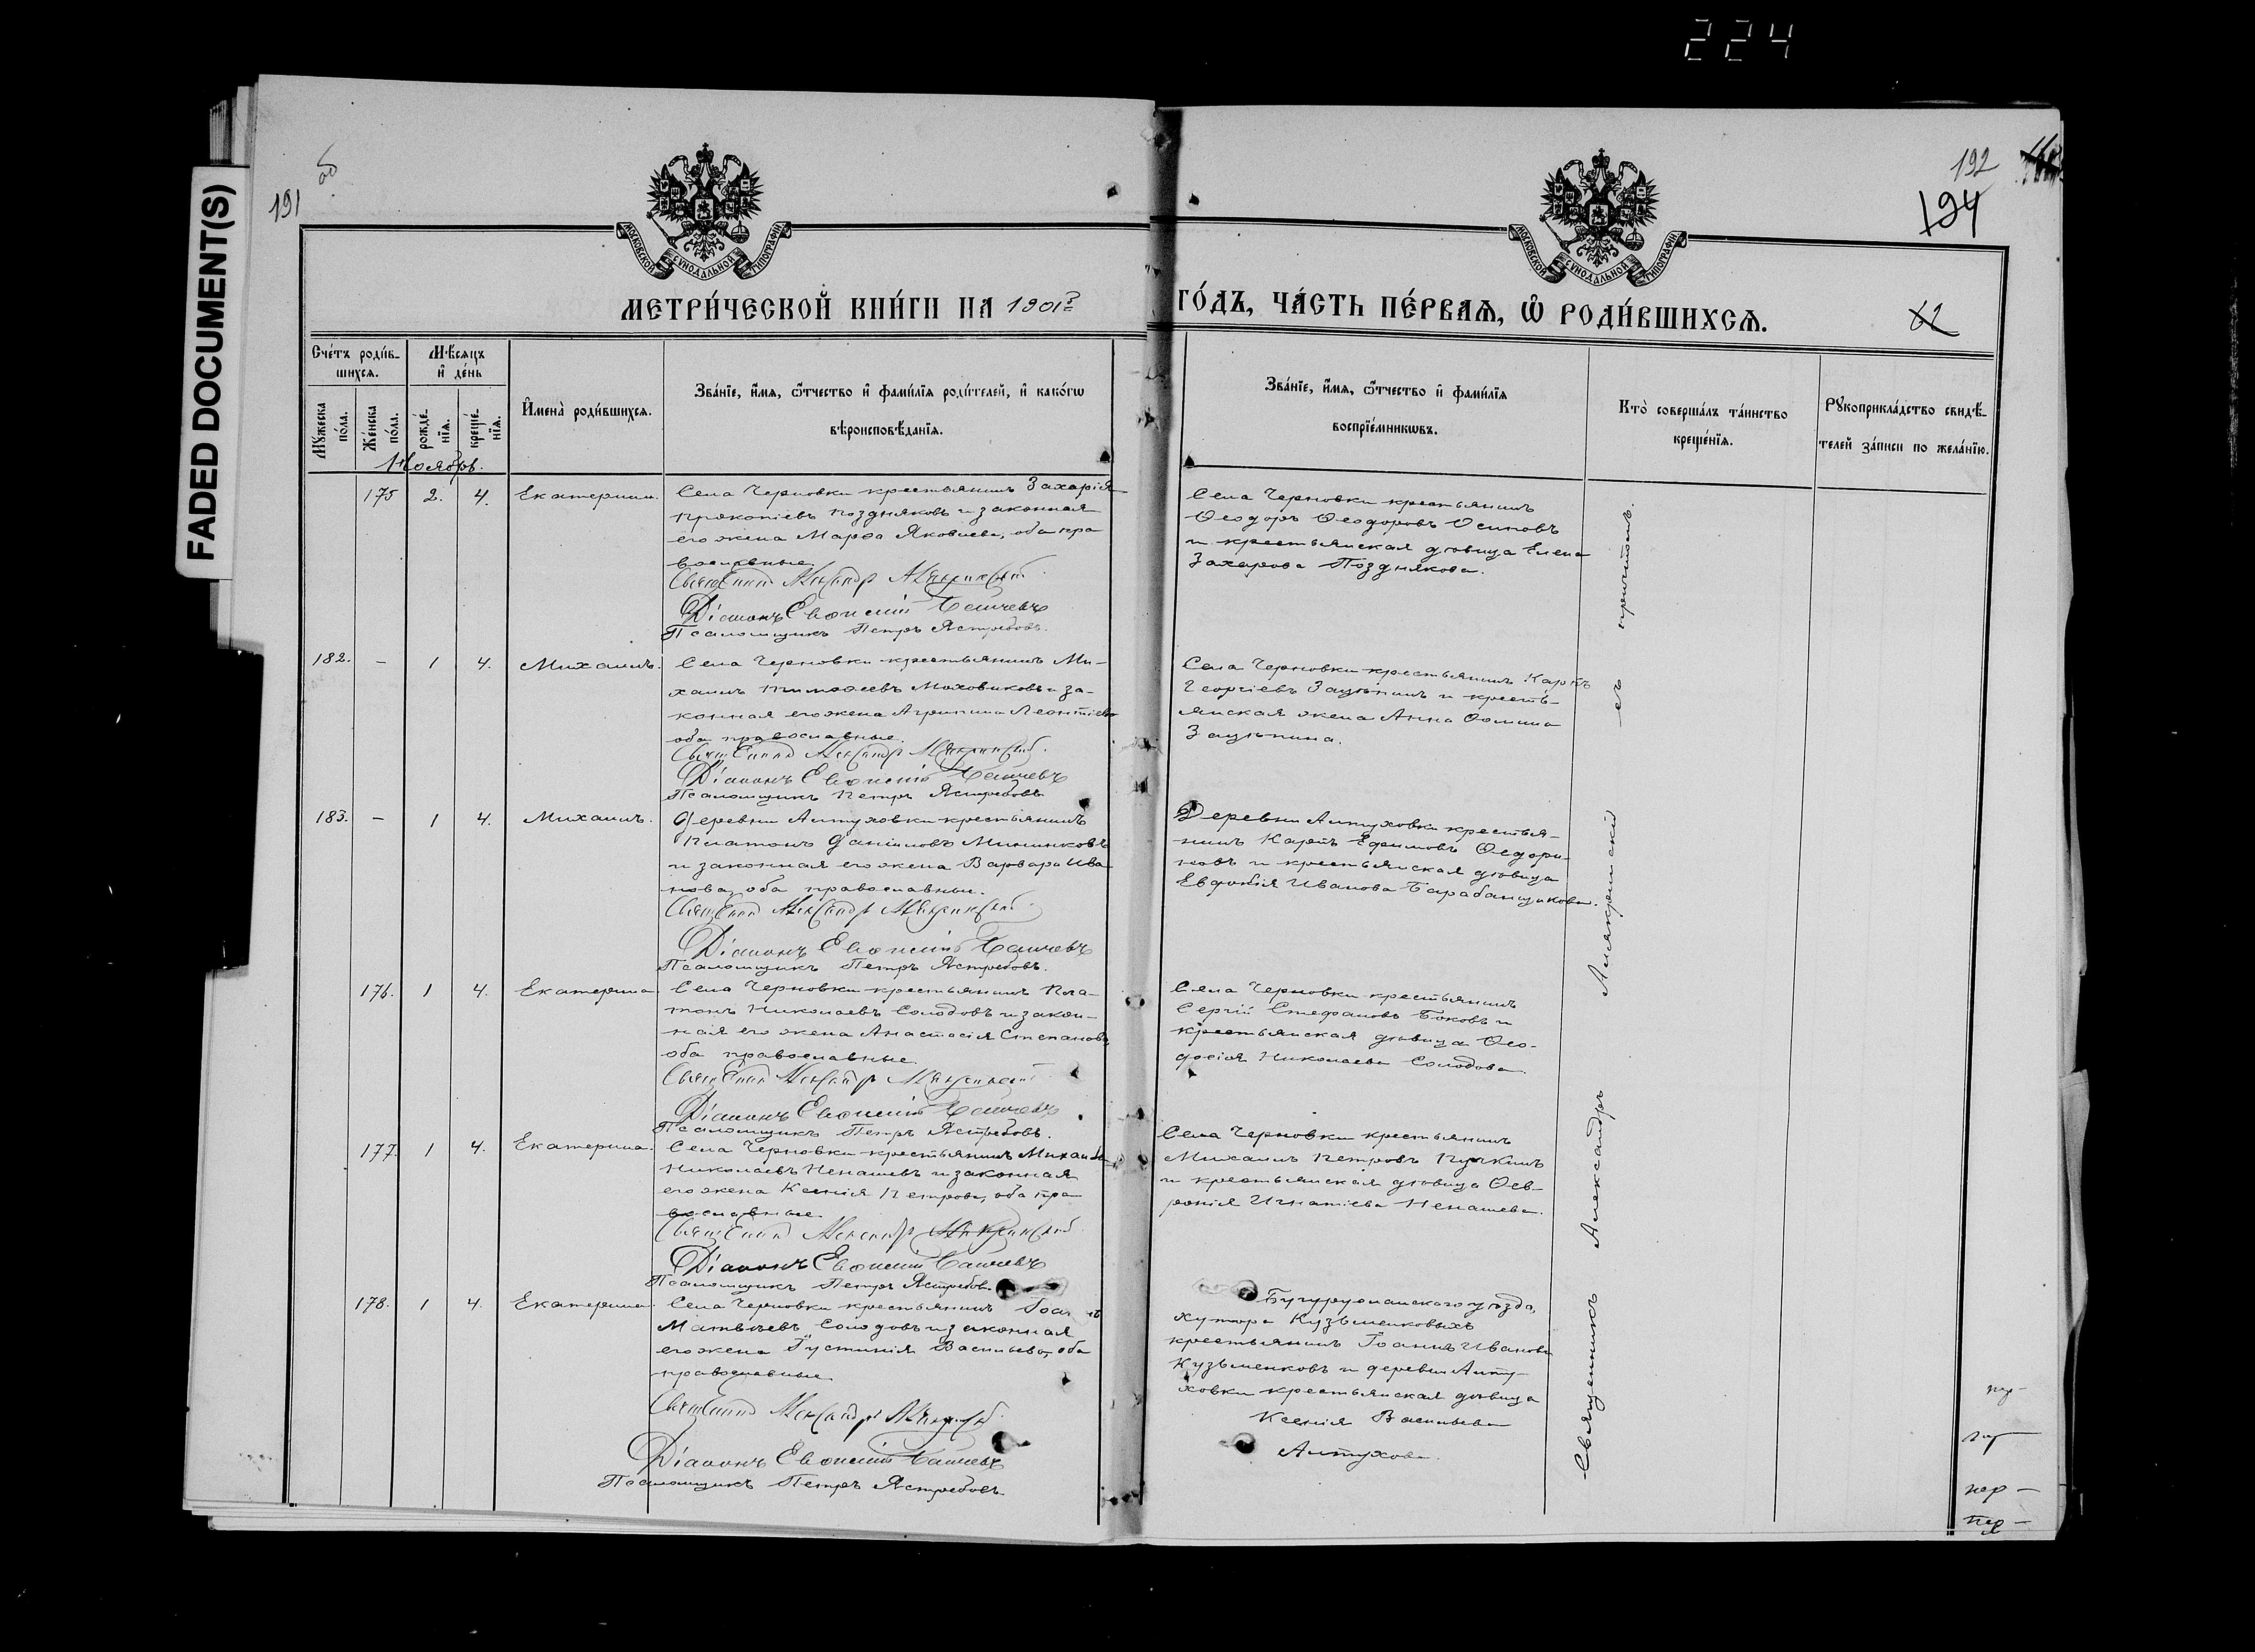 224
FADED DOCUMENT(S)
191
об
192
194
62
МОСКОВСКОЙ СѴНОДАЛЬНОЙ ТИПОГРАФІИ
МОСКОВСКОЙ СѴНОДАЛЬНОЙ ТИПОГРАФІИ
МЕТРИ́ЧЕСКОЙ КНИ́ГИ НА 1901й
ГО́ДЪ, ЧА́СТЬ ПЕ́РВАЯ, Ѡ҆ РОДИ́ВШИХСЯ.
Сче́тъ роди́в-
шихся.
Мѣ́сяцъ
и҆ де́нь
Мꙋ́жеска
по́ла.
Же́нска
по́ла.
рожде́-
нїя.
креще́-
нїя.
И҆мена̀ роди́вшихся.
Зва́нїе, и҆́мя, ѻ҆́тчество и҆ фами́лїя роди́телей, и҆ како́гѡ
вѣроисповѣ́данїя.
Зва́нїе, и҆́мя, ѻ҆́тчество и҆ фами́лїя
воспрїе́мникѡвъ.
Кто̀ соверша́лъ та́инство
креще́нїя.
Рꙋкоприкла́дство свидѣ́-
телей за́писи по жела́нїю.
Ноябрь.
175 2. 4. Екатерина.
Села Черновки крестьянинъ Захарія
Прокопіевъ Поздняковъ и законная
его жена Марѳа Яковлева, оба пра
вославные
Священникъ Александръ
Діаконъ Евѳимій
Псаломщикъ Петръ Ястребовъ.
Села Черновки крестьянинъ
Ѳеодоръ Ѳеодоровъ Осиповъ
и крестьянская дѣвица Елена
Захарова Позднякова.
182. — 1 4. Михаилъ.
Села Черновки крестьянинъ Ми-
хаилъ Тимоѳеевъ Моховиковъ и за-
конная его жена Агрипина Леонтіева
оба православные.
Священникъ Александръ
Діаконъ Евѳимій
Псаломщикъ Петръ Ястребовъ
Села Черновки крестьянинъ Карпъ
Георгіевъ Зацѣпинъ и кресть-
янская жена Анна Ѳомина
Зацѣпина.
183. — 1 4. Михаилъ.
Деревни Алтуховки крестьянинъ
Платонъ Даніиловъ Мининковъ
и законная его жена Варвара Ива
нова, оба православные.
Священникъ Александръ
Діаконъ Евѳимій
Псаломщикъ Петръ Ястребовъ.
Деревни Алтуховки крестья-
нинъ Карпъ Ефимовъ Ѳедори-
новъ и крестьянская дѣвица
Евдокія Иванова Барабанщикова.
176. 1 4. Екатерина
Села Черновки крестьянинъ Пла-
тонъ Николаевъ Солодовъ и закон-
ная его жена Анастасія Степанова,
оба православные.
Священникъ Александръ
Діаконъ Евѳимій
Псаломщикъ Петръ Ястребовъ.
Села Черновки крестьянинъ
Сергій Стефановъ Боковъ и
крестьянская дѣвица Ѳео-
досія Николаева Солодова.
177. 1 4. Екатерина.
Села Черновки крестьянинъ Михаилъ
Николаевъ Ненашевъ и законная
его жена Ксенія Петрова, оба пра
вославные.
Священникъ Александръ
Діаконъ Евѳимій
Псаломщикъ Петръ Ястребовъ
Села Черновки крестьянинъ
Михаилъ Петровъ Пучкинъ
и крестьянская дѣвица Ѳев-
ронія Игнатіева Ненашева.
178. 1 4. Екатерина.
Села Черновки крестьянинъ
Матвѣевъ Солодовъ и законная
его жена Іустинія Васильева, оба
православные.
Священникъ Александръ
Діаконъ Евѳимій
Псаломщикъ Петръ Ястребовъ
Бугурусланскаго уѣзда,
хутора Кузьменковыхъ
крестьянинъ Іоаннъ Ивановъ
Кузьменковъ и деревни Алту-
ховки крестьянская дѣвица
Ксенія Васильева
Алтухова.
Священникъ Александръ съ причтомъ.
пер —
пер —